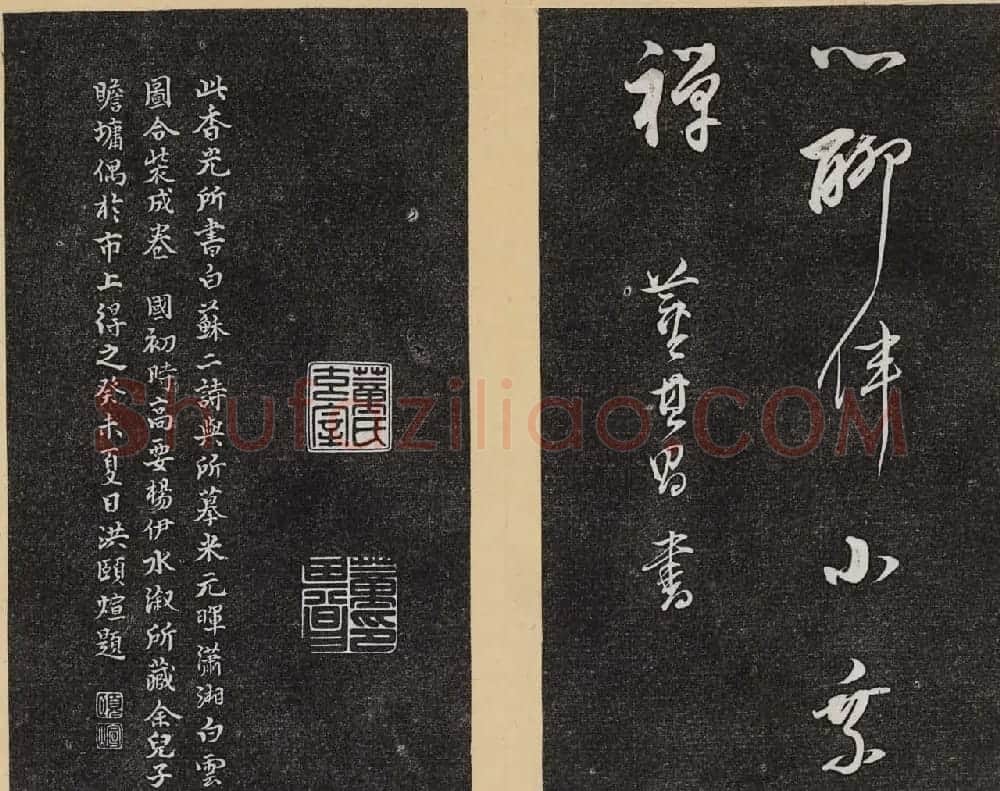 心聊伴小乘
禪 董其昌書
此香光所書白蘇二詩與所摹米元暉瀟湘白雲
圖合裝成卷 國初時高要楊伊水淑所藏余兒子
瞻墉偶於市上得之癸未夏日洪頤煊題
董氏
玄室
董其昌印
頤煊
Shufaziliao.COM